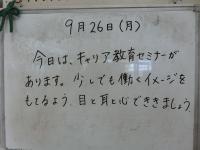 9月26日(月)
今日は、キャリア教育セミナーが
あります。少しでも働くイメージを
もてるよう、目と耳と心でききましょう。